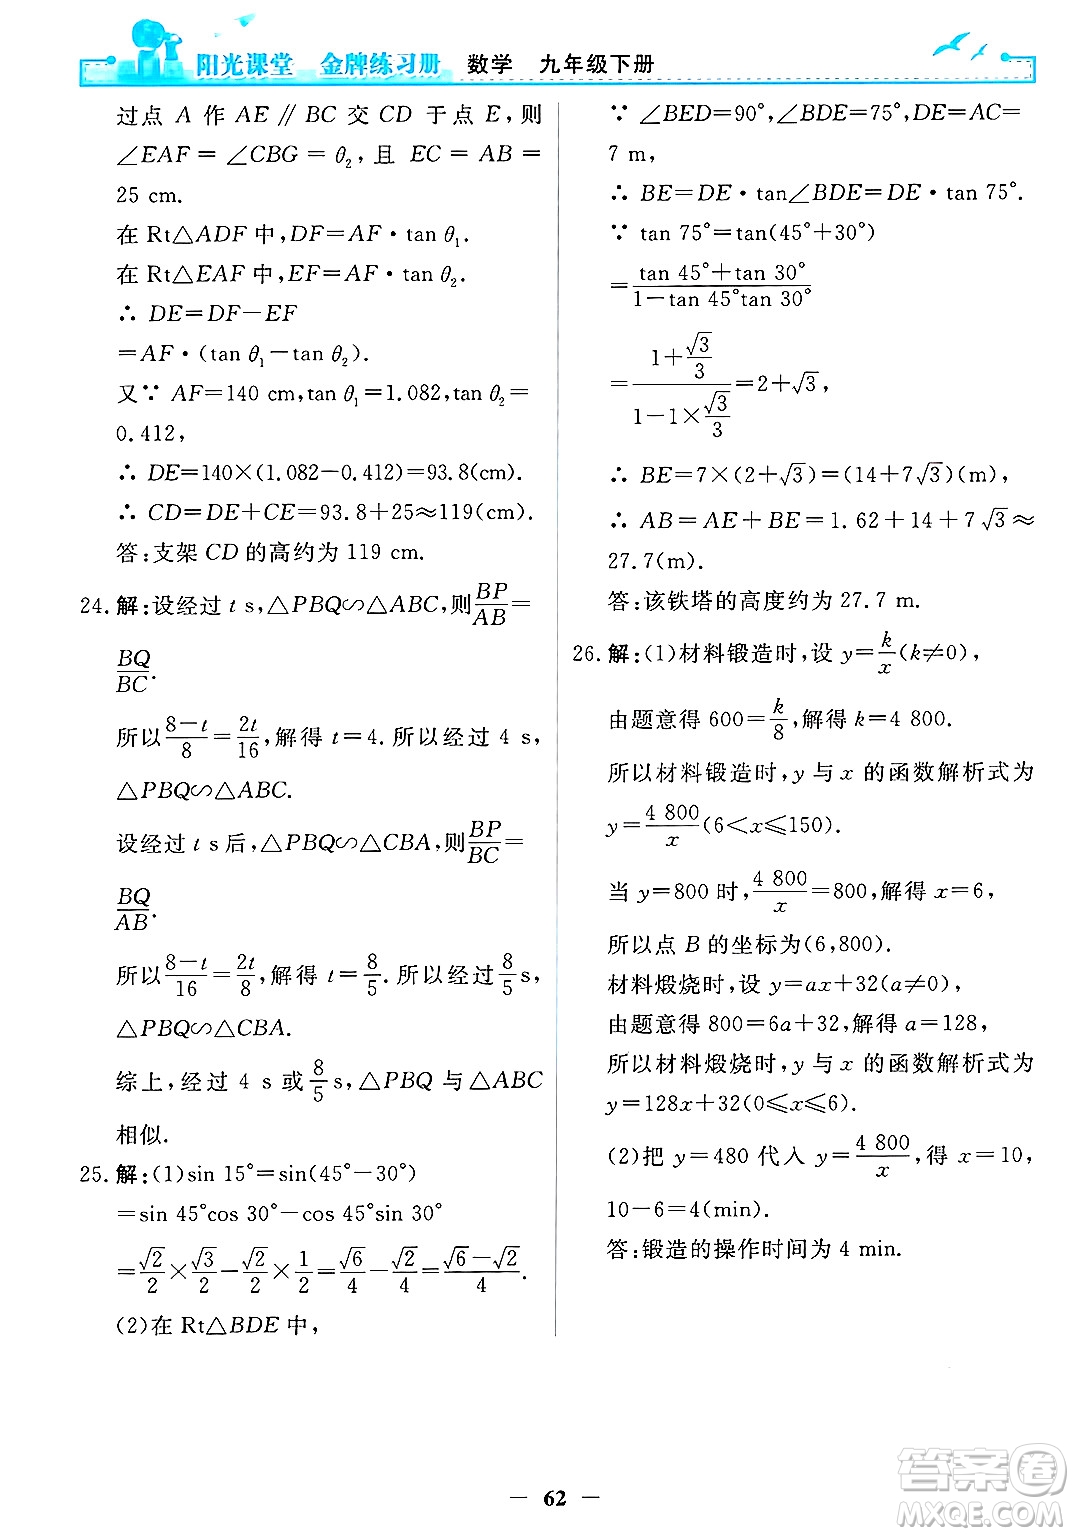 阳光课堂 金牌练习册 数学 九年级下册
过点 A 作 AE∥BC 交 CD 于点 E,则
∠EAF=∠CBG=θ₂,且 EC=AB=
25 cm.
在 Rt△ADF 中,DF=AF·tan θ₁.
在 Rt△EAF 中,EF=AF·tan θ₂.
∴ DE=DF-EF
=AF·(tan θ₁-tan θ₂).
又∵ AF=140 cm,tan θ₁=1.082,tan θ₂=
0.412,
∴ DE=140×(1.082-0.412)=93.8(cm).
∴ CD=DE+CE=93.8+25≈119(cm).
答:支架 CD 的高约为 119 cm.
24.解:设经过 t s,△PBQ∽△ABC,则BP/AB=
BQ/BC.
所以(8-t)/8=2t/16,解得 t=4.所以经过 4 s,
△PBQ∽△ABC.
设经过 t s 后,△PBQ∽△CBA,则BP/BC=
BQ/AB.
所以(8-t)/16=2t/8,解得 t=8/5.所以经过8/5s,
△PBQ∽△CBA.
综上,经过 4 s 或8/5s,△PBQ 与△ABC
相似.
25.解:(1)sin 15°=sin(45°-30°)
=sin 45°cos 30°-cos 45°sin 30°
=√2/2×√3/2-√2/2×1/2=√6/4-√2/4=(√6-√2)/4.
(2)在 Rt△BDE 中,
∵ ∠BED=90°,∠BDE=75°,DE=AC=
7 m,
∴ BE=DE·tan∠BDE=DE·tan 75°.
∵ tan 75°=tan(45°+30°)
=(tan 45°+tan 30°)/(1-tan 45°tan 30°)
=(1+√3/3)/(1-1×√3/3)=2+√3,
∴ BE=7×(2+√3)=(14+7√3)(m),
∴ AB=AE+BE=1.62+14+7√3≈
27.7(m).
答:该铁塔的高度约为 27.7 m.
26.解:(1)材料锻造时,设 y=k/x(k≠0),
由题意得 600=k/8,解得 k=4 800.
所以材料锻造时,y 与 x 的函数解析式为
y=4 800/x(6<x≤150).
当 y=800 时,4 800/x=800,解得 x=6,
所以点 B 的坐标为(6,800).
材料煅烧时,设 y=ax+32(a≠0),
由题意得 800=6a+32,解得 a=128,
所以材料煅烧时,y 与 x 的函数解析式为
y=128x+32(0≤x≤6).
(2)把 y=480 代入 y=4 800/x,得 x=10,
10-6=4(min).
答:锻造的操作时间为 4 min.
— 62 —
答案圈
MXQE.COM